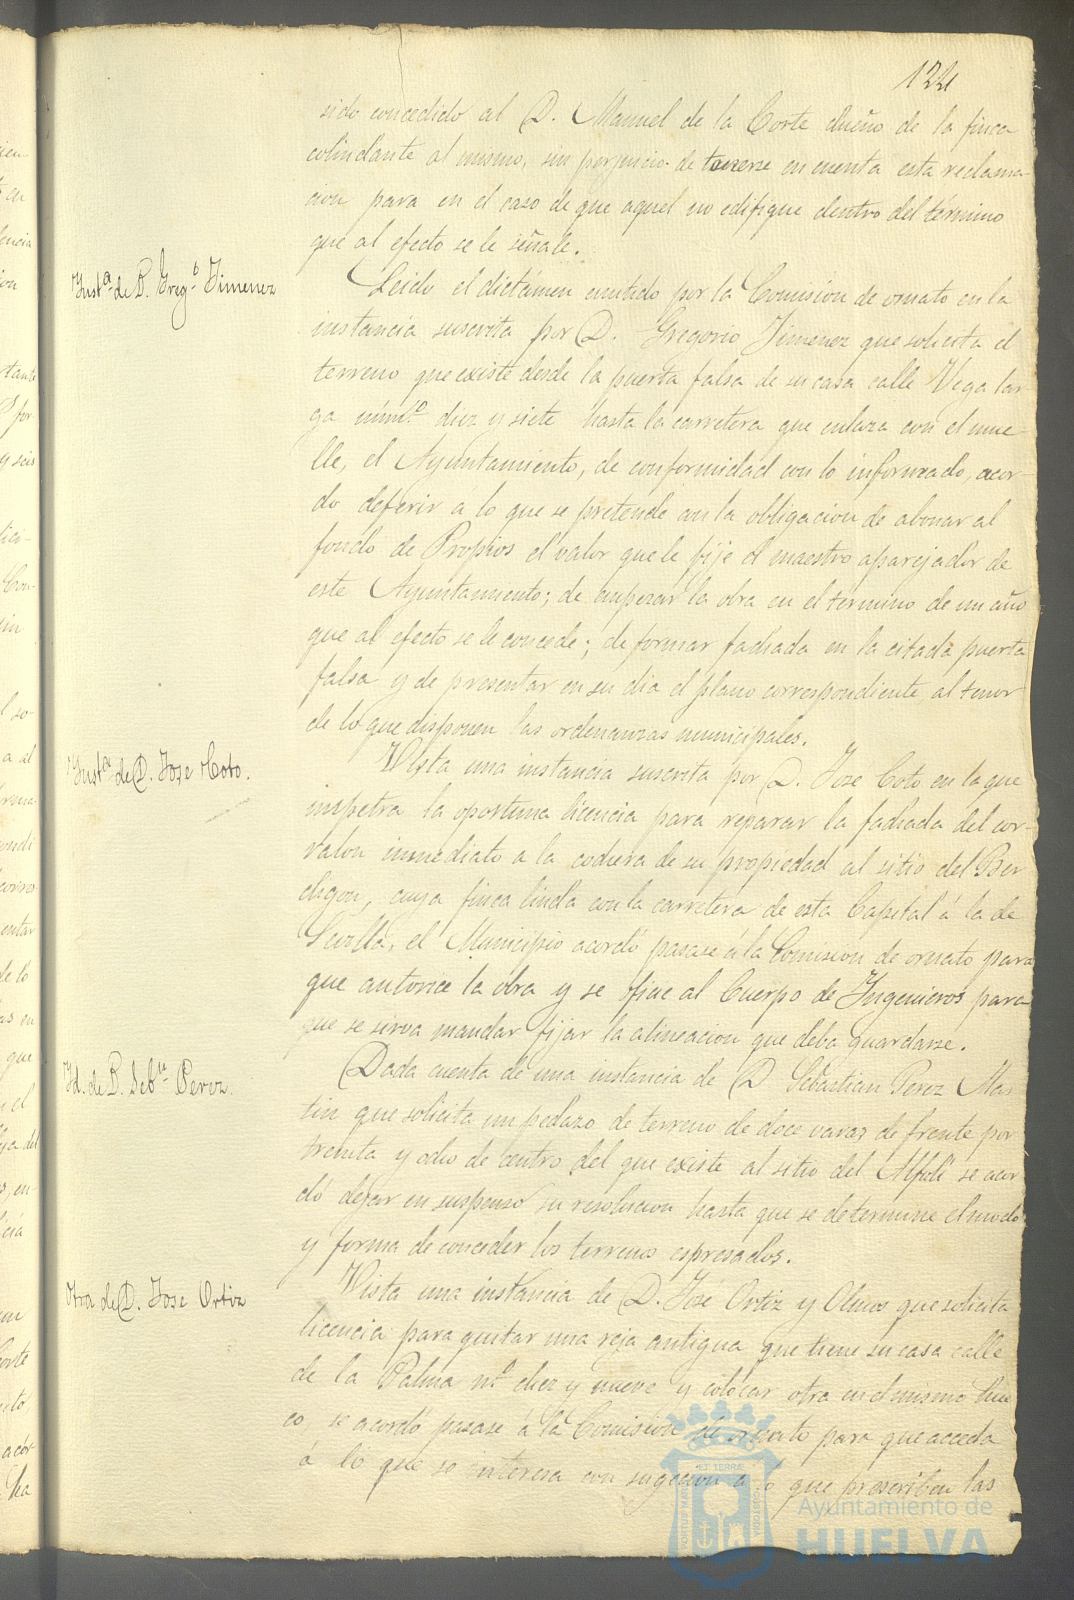 122
sido concedido al D. Manuel de la Corte dueño de la finca
colindante al mismo, sin perjuicio de tenerse en cuenta esta reclama-
cion para en el caso de que aquel no edifique dentro del término
que al efecto se le señale.
Insta. de D. Grego. Jimenez
Leido el dictámen emitido por la Comision de ornato en la
instancia suscrita por D. Gregorio Jimenez que solicita el
terreno que existe desde la puerta falsa de su casa calle Vega lar-
ga núm.o diez y siete hasta la carretera que enlaza con el mue-
lle, el Ayuntamiento, de conformidad con lo informado, acor-
do deferir a lo que se pretende con la obligacion de abonar al
fondo de Propios el valor que le fije el maestro aparejador de
este Ayuntamiento; de empezar la obra en el termino de un año
que al efecto se le concede; de formar fachada en la citada puerta
falsa y de presentar en su dia el plano correspondiente, al tenor
de lo que disponen las ordenanzas municipales.
Insta. de D. Jose Coto.
Vista una instancia suscrita por D. Jose Coto en la que
impetra la oportuna licencia para reparar la fachada del cor-
ralon inmediato a la cochera de su propiedad al sitio del Ber
digon, cuya finca linda con la carretera de esta Capital á la de
Sevilla, el Municipio acordó pasase á la Comision de ornato para
que autorice la obra y se oficie al Cuerpo de Ingenieros para
que se sirva mandar fijar la alineacion que deba guardarse.
Id. de D. Sebn. Perez.
Dada cuenta de una instancia de D. Sebastian Perez Mar
tin que solicita un pedazo de terreno de doce varas de frente por
treinta y ocho de centro del que existe al sitio del Alfolí se acor
dó dejar en suspenso su resolucion hasta que se determine el modo
y forma de conceder los terrenos espresados.
Otra de D. Jose Ortiz
Vista una instancia de D. José Ortiz y Olmos que solicita
licencia para quitar una reja antigua que tiene su casa calle
de la Palma n.o diez y nueve y colocar otra en el mismo hue
co, se acordó pasase á la Comision de ornato para que acceda
á lo que se interesa con sugecion a lo que prescriben las
Ayuntamiento de
HUELVA